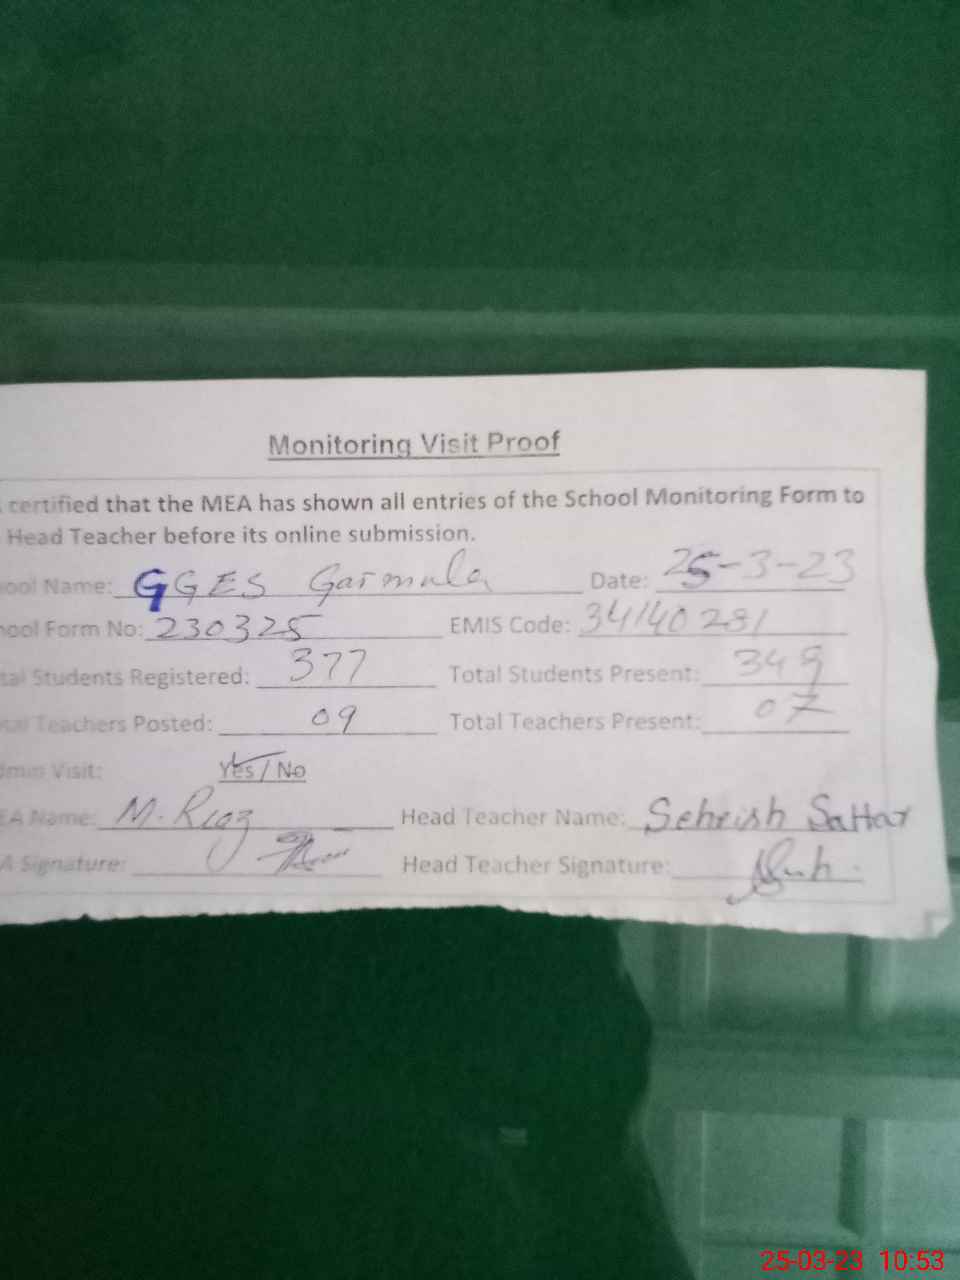 Monitoring Visit Proof
certified that the MEA has shown all entries of the School Monitoring Form to
Head Teacher before its online submission.
ool Name: GGES Garmula Date: 25-3-23
ool Form No: 230325 EMIS Code: 34140281
tal Students Registered: 377 Total Students Present: 349
tal Teachers Posted: 09 Total Teachers Present: 07
dmin Visit: Yes / No
EA Name: M. Riaz Head Teacher Name: Sehrish Sattar
A Signature: Head Teacher Signature:
25-03-23 10:53